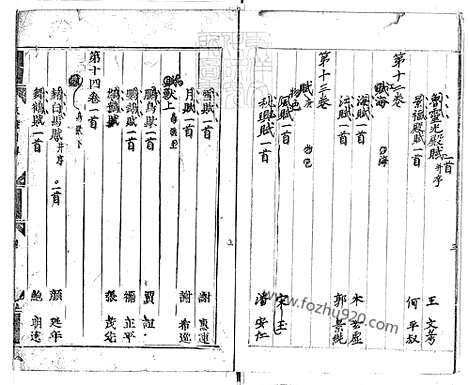 魯靈光殿賦一首 并序 王文考
景福殿賦一首 何平叔
第十二卷
賦海
海賦一首 木玄虛
江賦一首 郭景純
第十三卷
賦庚
物色
風賦一首 宋玉
秋興賦一首 潘安仁
三
雪賦一首 謝惠連
月賦一首 謝希逸
鳥獸上
鵩鳥賦一首 賈誼
鸚鵡賦一首 禰正平
鷦鷯賦一首 張茂先
第十四卷
鳥獸下
赭白馬賦一首 并序 顏延年
舞鶴賦一首 鮑明遠
www.fozhu920.com